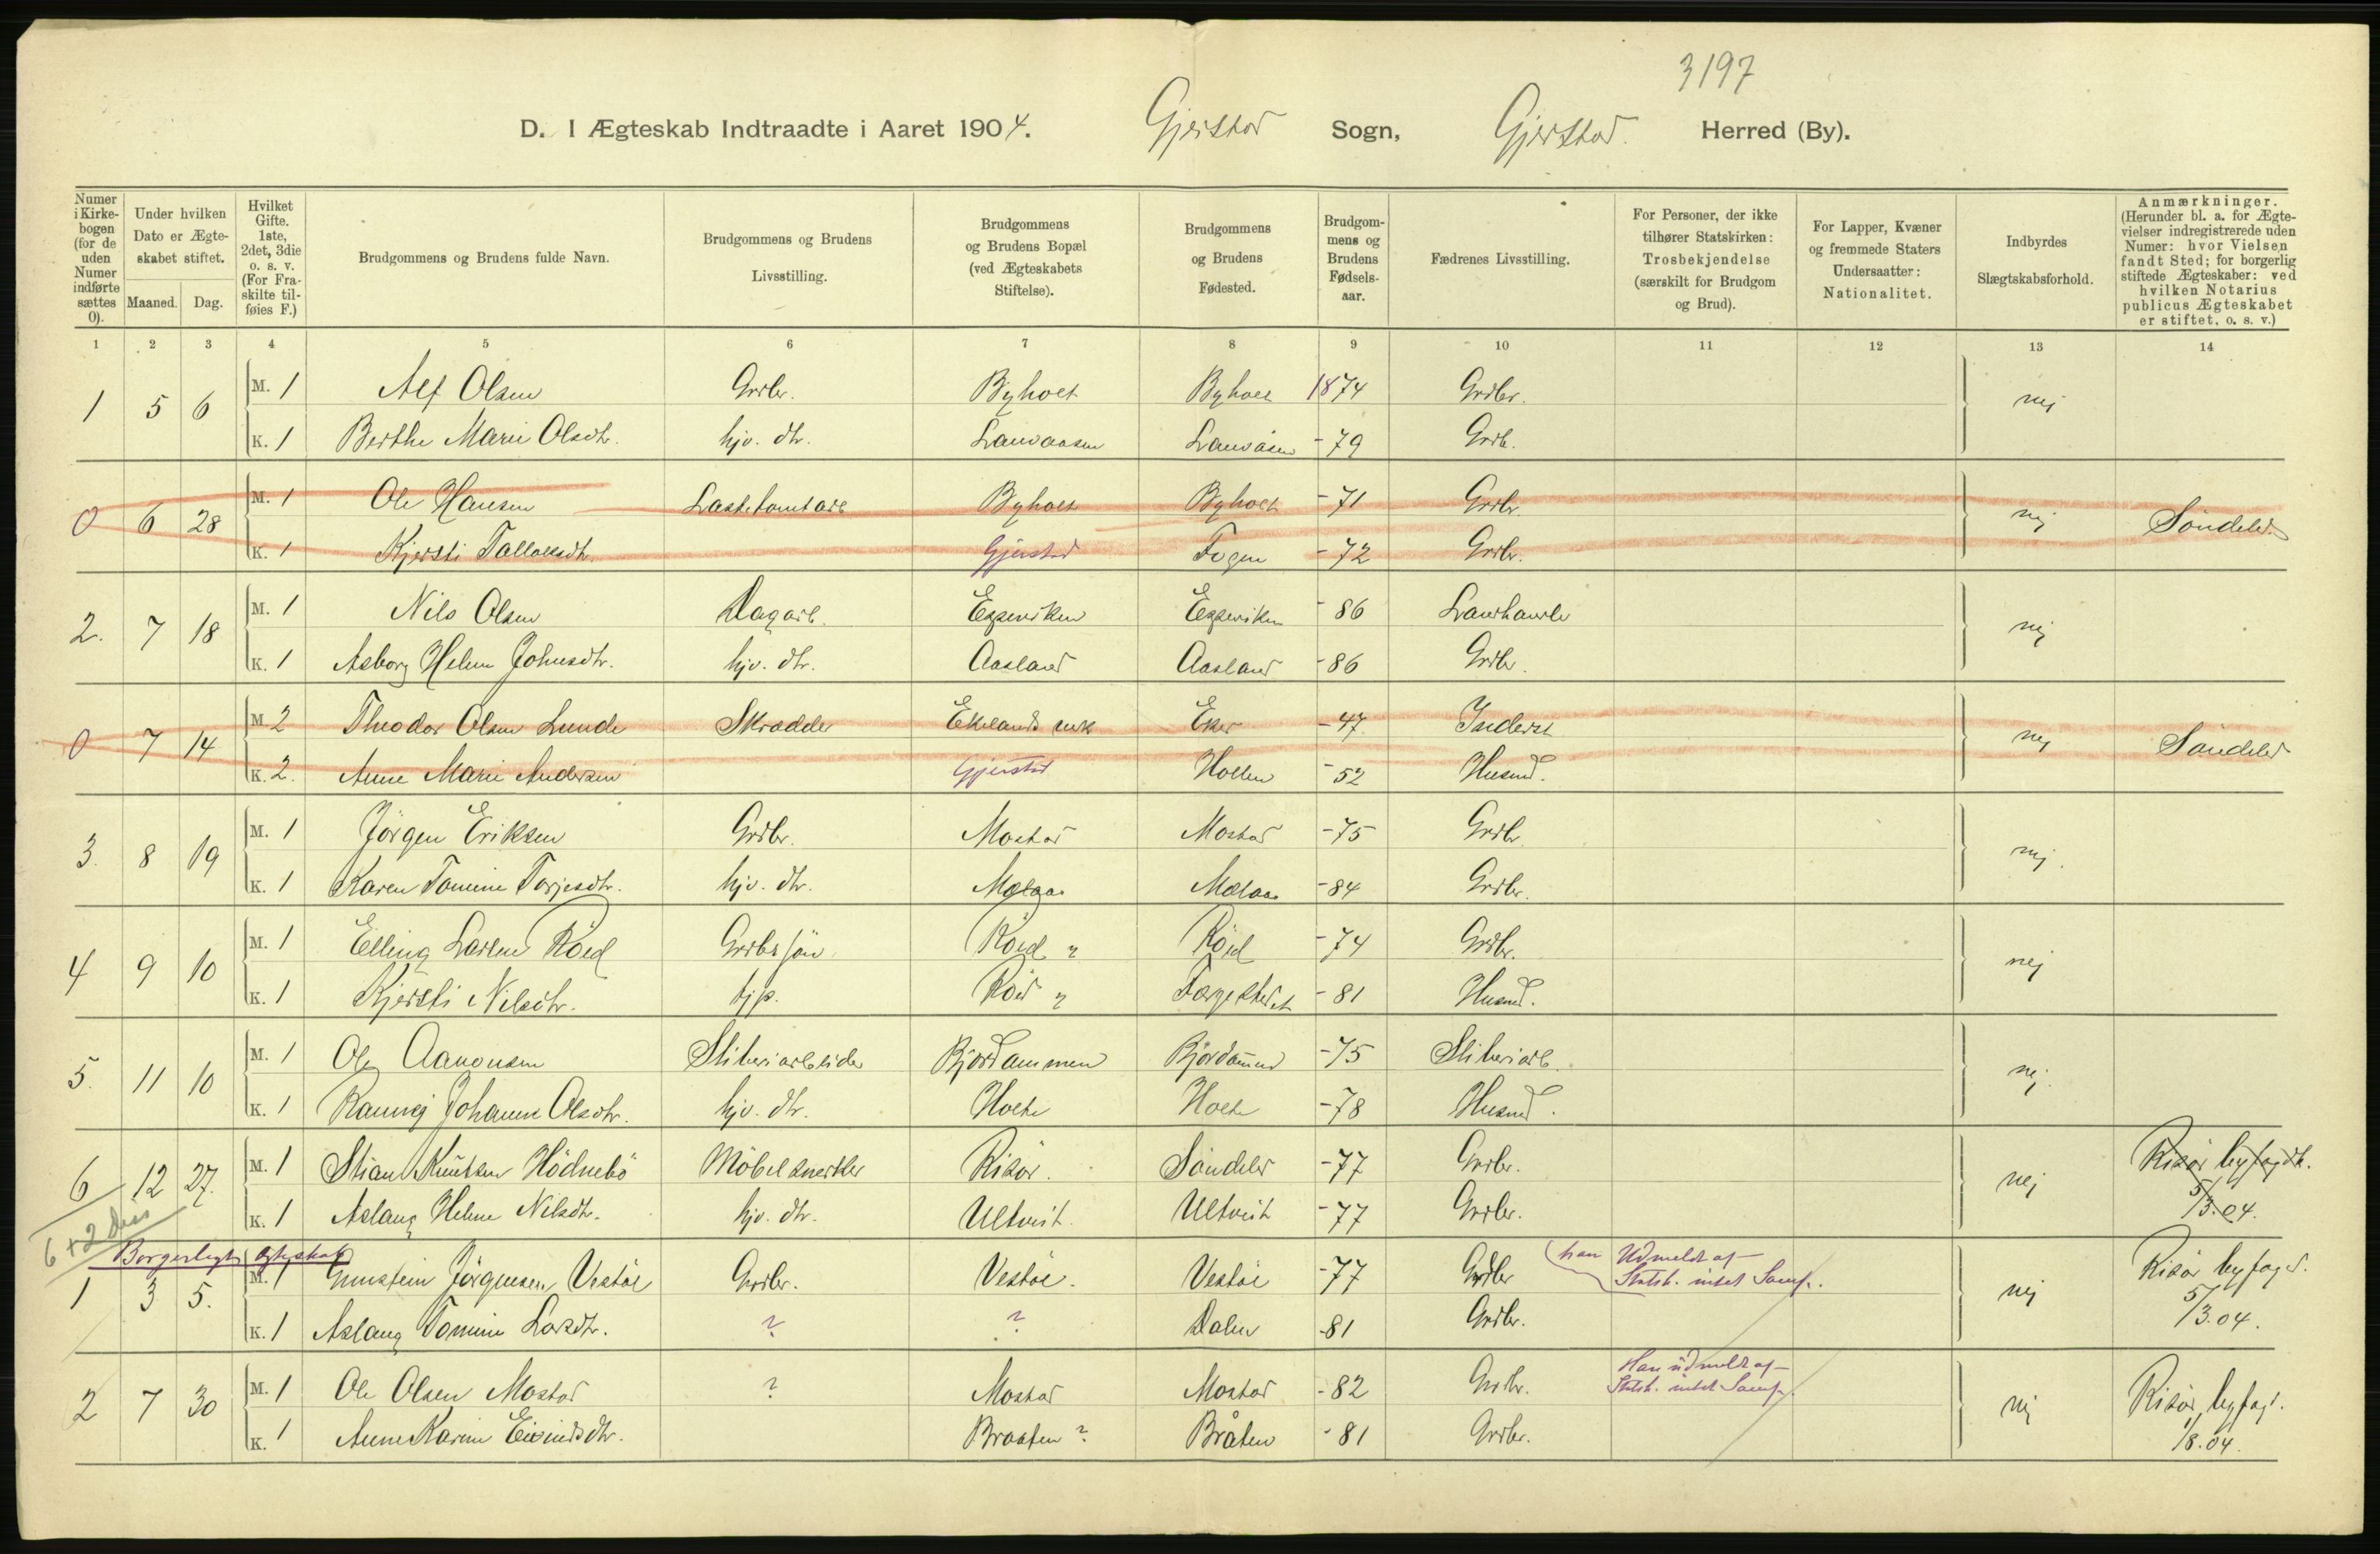 3197
D. I Ægteskab Indtraadte i Aaret 1904. Gjerstad Sogn, Gjerstad. Herred (By).
Numer i Kirke-bogen (for de uden Numer indførte sættes 0).
Under hvilken Dato er Ægte-skabet stiftet.
Maaned. Dag.
Hvilket Gifte. 1ste, 2det, 3die o. s. v. (For Fra-skilte til-føies F.)
Brudgommens og Brudens fulde Navn.
Brudgommens og Brudens Livsstilling.
Brudgommens og Brudens Bopæl (ved Ægteskabets Stiftelse).
Brudgommens og Brudens Fødested.
Brudgom-mens og Brudens Fødsels-aar.
Fædrenes Livsstilling.
For Personer, der ikke tilhører Statskirken: Trosbekjendelse (særskilt for Brudgom og Brud).
For Lapper, Kvæner og fremmede Staters Undersaatter: Nationalitet.
Indbyrdes Slægtskabsforhold.
Anmærkninger. (Herunder bl. a. for Ægte-vielser indregistrerede uden Numer: hvor Vielsen fandt Sted; for borgerlig stiftede Ægteskaber: ved hvilken Notarius publicus Ægteskabet er stiftet, o. s. v.)
1 2 3 4 5 6 7 8 9 10 11 12 13 14
1 5 6 M. 1 Alf Olsen Grdbr. Byholt Byholt 1874 Grdbr. nej
K. 1 Berthe Marie Olsdtr. hjv. dtr. Lauvaasen Lauvåsen -79 Grdb.
0 6 28 M. 1 Ole Hansen Lastetomtarb Byholt Byholt -71 Grdbr. nej Söndeled
K. 1 Kjersti Tallaksdtr. Gjerstad Fogen -72 Grdbr.
2. 7 18 M. 1 Nils Olsen Dagarb. Eppeviken Eppeviken -86 Landhandler nej
K. 1 Asborg Helene Johnsdtr. hjv. dtr. Aasland Aasland -86 Grdbr.
0 7 14 M 2 Theodor Olsen Lunde Skrædder Ekelands verk Eker -47 Inderst nej Söndeled
K. 2. Anne Marie Andersen Gjerstad Hollen -52 Husmd.
3. 8 19 M. 1 Jörgen Eriksen Grdbr. Mostad Mostad -75 Grdbr. nej.
K. 1 Karen Tomine Torjesdtr. hjv. dtr. Mælaas Mælaas -84 Grdbr.
4 9 10 M. 1 Elling Larsen Röed Grdbrsön Röed ? Röed -74 Grdbr. nej
K. 1 Kjersti Nilsdtr. tjp. Röed ? -81 Husmd.
5. 11 10 M. 1 Ole Aanonsen Sliberiarbeider Bjordammen Bjordammen -75 Sliberiarb. nej.
K. 1 Ranvej Johanne Olsdtr. hjv. dtr. Holte Holte -78 Husmd.
6 12 27. M. 1 Stian Knutsen Hödnebö Möbelsnedker Risör. Söndeled -77 Grdbr. nej Risör byfogdk. 5/3.04.
K. 1 Aslaug Helene Nilsdtr. hjv. dtr. Ultveit. Ultveit -77 Grdbr.
6 + 2 diss
Borgerligt Ægteskab
1 3 5. M. 1 Gunstein Jörgensen Vestöl Grdbr. Vestöl. Vestöl -77 Grdbr (han Udmeldt af Statsk. intet Samf. nej Risör byfogd. 5/3.04.
K. 1 Aslaug Tomine Larsdtr. ? ? Dalen -81 Grdbr.
2 7 30 M. 1 Ole Olsen Mostad ? Mostad Mostad -82 Grdbr. Han udmeldt af Statsk. intet Samf. nej Risör byfogd. 1/8.04.
K. 1 Anne Karine Eivindsdtr. Braaten ? Bråten -81 Grdbr.